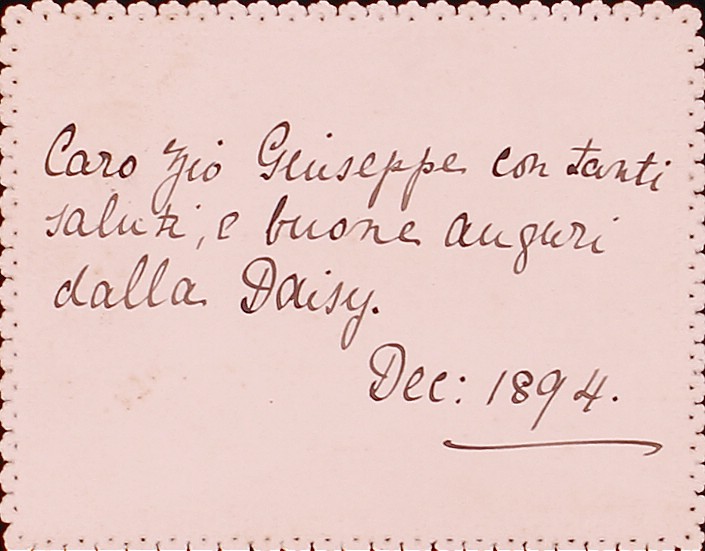 Caro Zio Giuseppe con tanti
saluti, e buone auguri
dalla Daisy.
Dec: 1894.